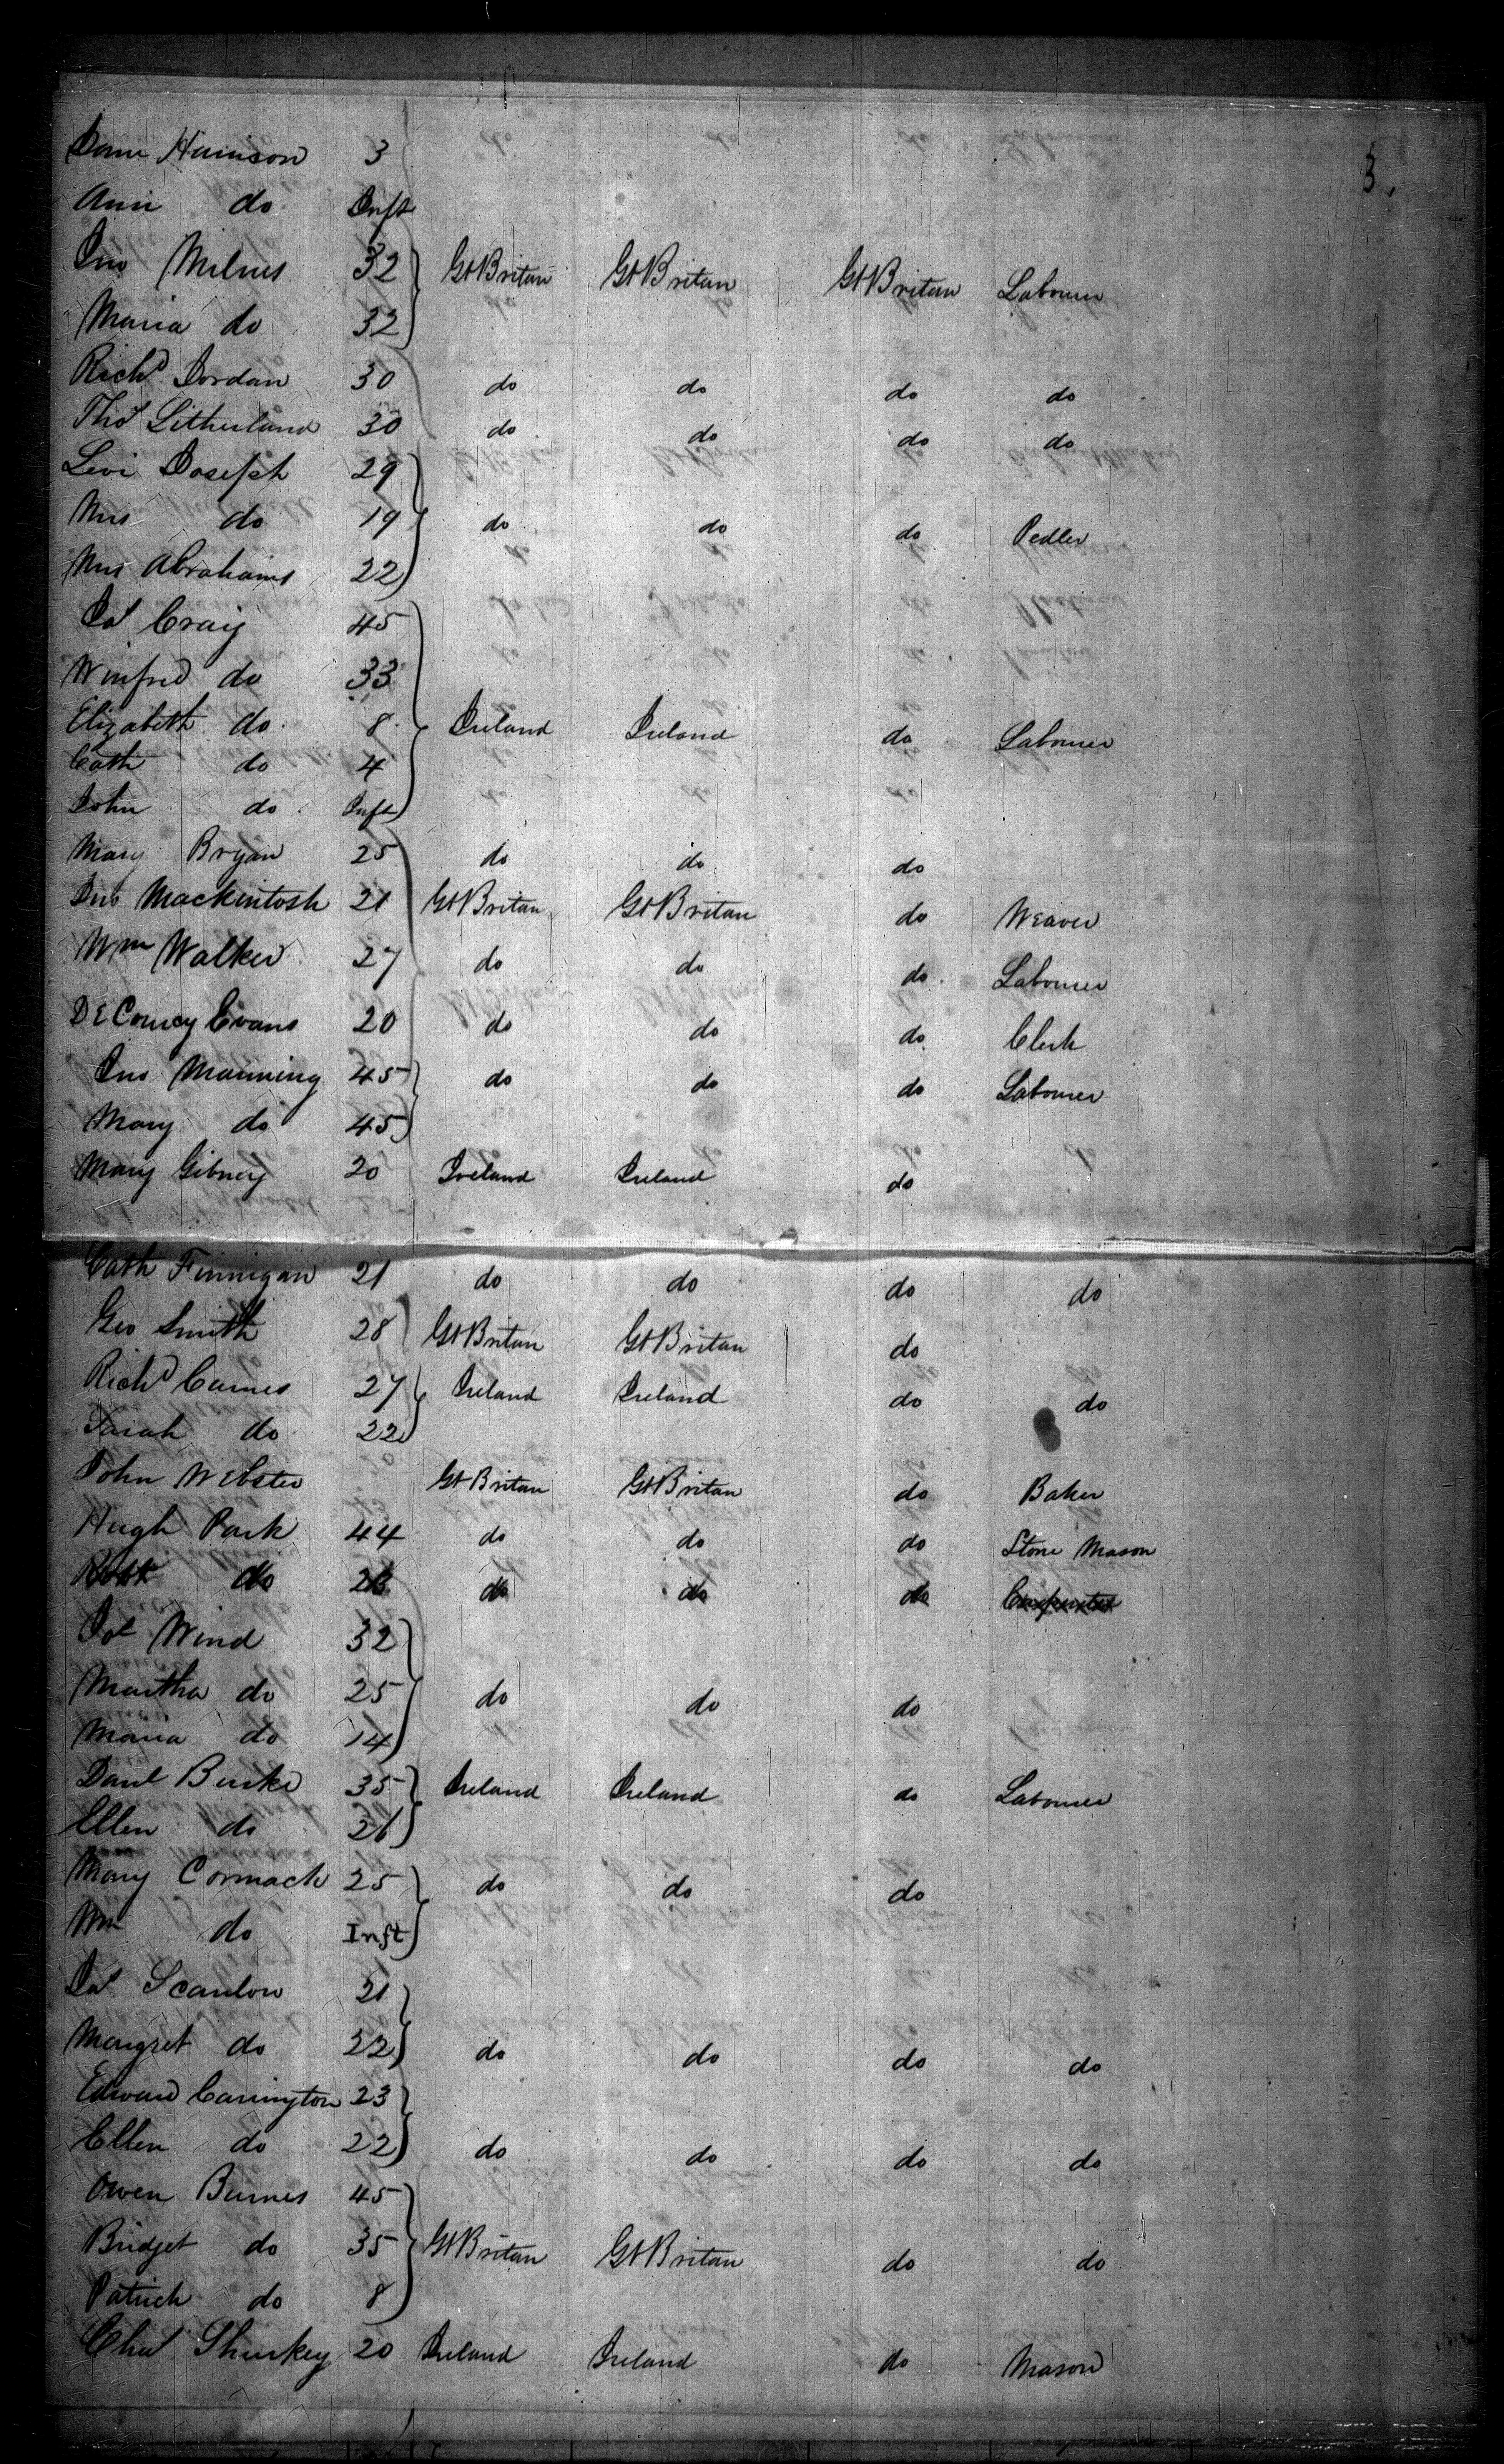 3.
Jane Harrison 3
Ann do Inft
Jno Milnes 32 Gt Britan Gt Britan Gt Britan Labourer
Maria do 32
Richd Jordan 30 do do do do
Thos Litherland 30 do do do do
Levi Joseph 29
Mrs do 19 do do do Pedler
Mrs Abrahams 22
Jas Craig 45
Winfred do 33
Elizabeth do 8 Ireland Ireland do Labourer
Cath do 4
John do Inft
Mary Bryan 25 do do do
Jno Mackintosh 21 Gt Britan Gt Britan do Weaver
Wm Walker 27 do do do Labourer
De Courcy Evans 20 do do do Clerk
Jno Manning 45 do do do Labourer
Mary do 45
Mary Gibney 20 Ireland Ireland do
Cath Finnigan 21 do do do do
Geo Smith 28 Gt Britan Gt Britan do
Richd Carnes 27 Ireland Ireland do do
Sarah do 22
John Webster Gt Britan Gt Britan do Baker
Hugh Park 44 do do do Stone Mason
Robt do do do do Carpenter
Jos Wind 32
Martha do 25 do do do
Maria do 14
Danl Burke 35 Ireland Ireland do Labourer
Ellen do 26
Mary Cormack 25 do do do
Wm do Inft
Jas Scanlon 21
Margret do 22 do do do do
Edward Carrington 23
Ellen do 22 do do do do
Owen Burnes 45
Bridget do 35 Gt Britan Gt Britan do do
Patrick do 8
Chas Sharkey 20 Ireland Ireland do Mason